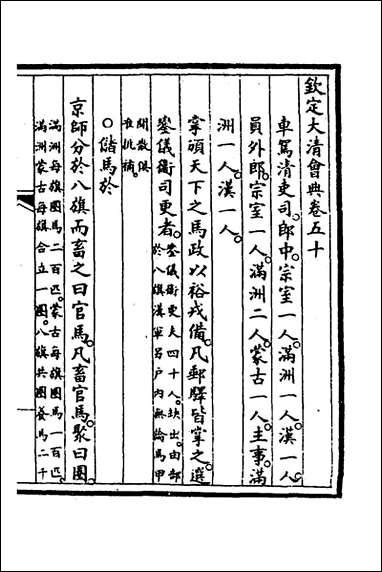 欽定大清會典卷五十
車駕清吏司。郎中。宗室一人。滿洲一人。漢一人。
員外郎。宗室一人。滿洲二人。蒙古一人。主事。滿
洲一人。漢一人。
掌頒天下之馬政。以裕戎備。凡郵驛皆掌之。選
鑾儀衞司更者。鑾儀衞更夫四十人。缺出。由部
於八旗漢軍另戶內無論馬甲
閒散俱
准挑補。
○儲馬於
京師分於八旗而畜之曰官馬。凡畜官馬。聚曰圈。
滿洲每旗圈馬二百匹。蒙古每旗圈馬一百匹。
滿洲蒙古每旗合立一圈。八旗共圈養馬二千